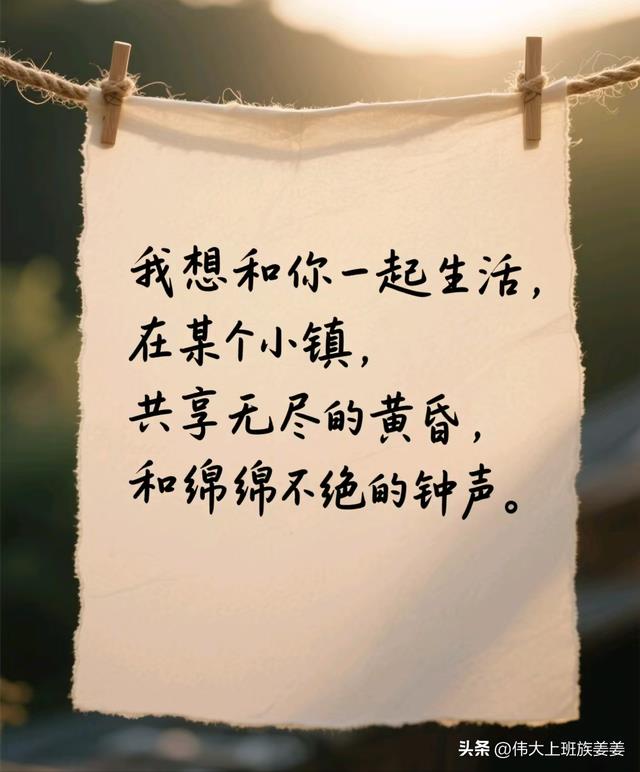 我想和你一起生活，
在某个小镇，
共享无尽的黄昏，
和绵绵不绝的钟声。
头条 @伟大上班族姜姜